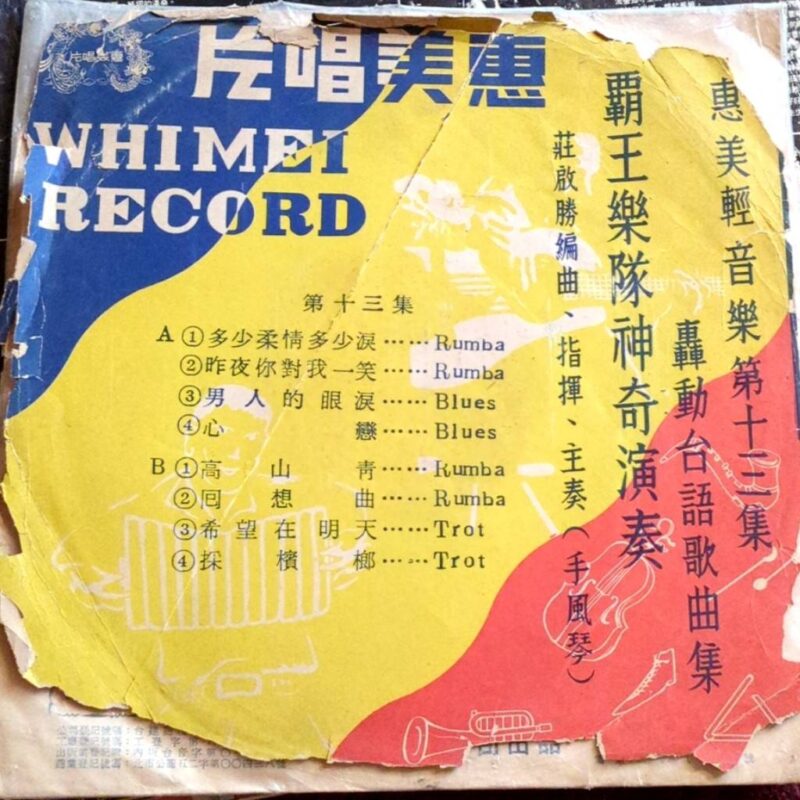 片唱美惠
片唱美惠
WHIMEI
RECORD
惠美輕音樂第十三集
轟動台語歌曲集
覇王樂隊神奇演奏
莊啟勝編曲、指揮、主奏(手風琴)
第十三集
A ①多少柔情多少淚……Rumba
②昨夜你對我一笑……Rumba
③男人的眼淚……Blues
④心戀……Blues
B ①高山青……Rumba
②囘想曲……Rumba
③希望在明天……Trot
④採檳榔……Trot